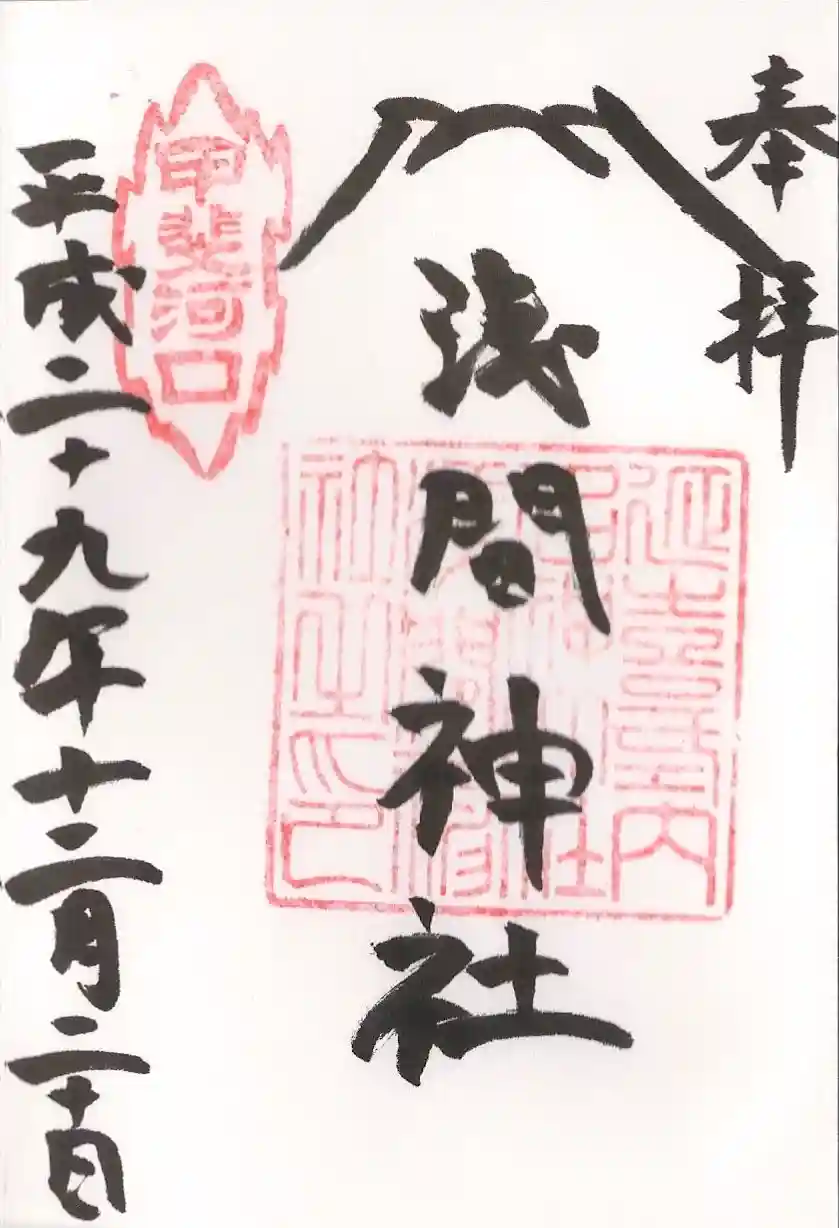 奉拝
浅間神社
延喜式内
名神大社
甲斐河口
平成二十九年十二月二十日